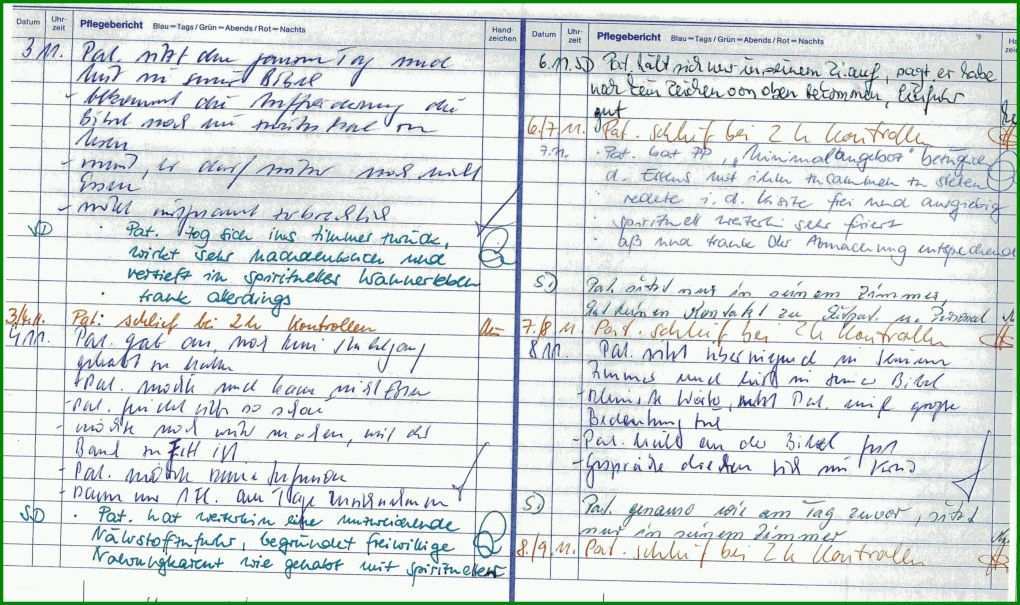 Datum Uhr-zeit Pflegebericht Blau=Tags / Grün=Abends / Rot=Nachts Hand-zeichen
3 11. Pat. sitzt den ganzen Tag und
liest in seiner Bibel
- bekommt die Aufforderung die
Bibel
lesen
- meint, er darf nichts
Essen
- nicht
SD · Pat. zog sich ins Zimmer zurück,
wirkt sehr nachdenklich und
vertieft in spirituelles Wahnerleben
· trank allerdings
3/4.11. Pat. schlief bei 2h Kontrollen
4 11. Pat. gab an, noch kein
gehabt zu haben
- Pat. möchte und kann nicht Essen
- Pat. findet sich so schön
- möchte noch mehr, weil das
Band zu ist
- Pat. möchte keine Infusion
- Kann nur 1 Fl. am Tage
SD · Pat. hat weiterhin eine unzureichende
Nährstoffzufuhr, begründet freiwillige
Nahrungskarenz wie gehabt mit spirituellem
Datum Uhr-zeit Pflegebericht Blau=Tags / Grün=Abends / Rot=Nachts
6.11. SD Pat. hält sich nur in seinem Zi. auf, sagt, er habe
noch kein Zeichen von oben bekommen, Einfuhr
gut
6./7 11. Pat. schlief bei 2h Kontrollen
7.11. · Pat. hat PP „Minimalangebot" bezüglich
d. Essens mit ihm zusammen zu
· redete i. d. Visite frei und ausgiebig
· spirituell weiterhin sehr fixiert
· aß und trank der Abmachung entsprechend
S.) Pat. sitzt nur in seinem Zimmer,
hat keinen Kontakt zu Mitpat. u. Personal
7./8 11. Pat. schlief bei 2h Kontrollen
8 11. Pat. sitzt überwiegend in seinem
Zimmer und liest in seiner Bibel
- Worte, mißt Pat. eine große
Bedeutung zu
- Pat. hält an der Bibel fest
- Gespräche drehen sich im Kreis
S.) Pat. genauso wie am Tag zuvor, sitzt
nur in seinem Zimmer
8./9. 11. Pat. schlief bei 2h Kontrollen